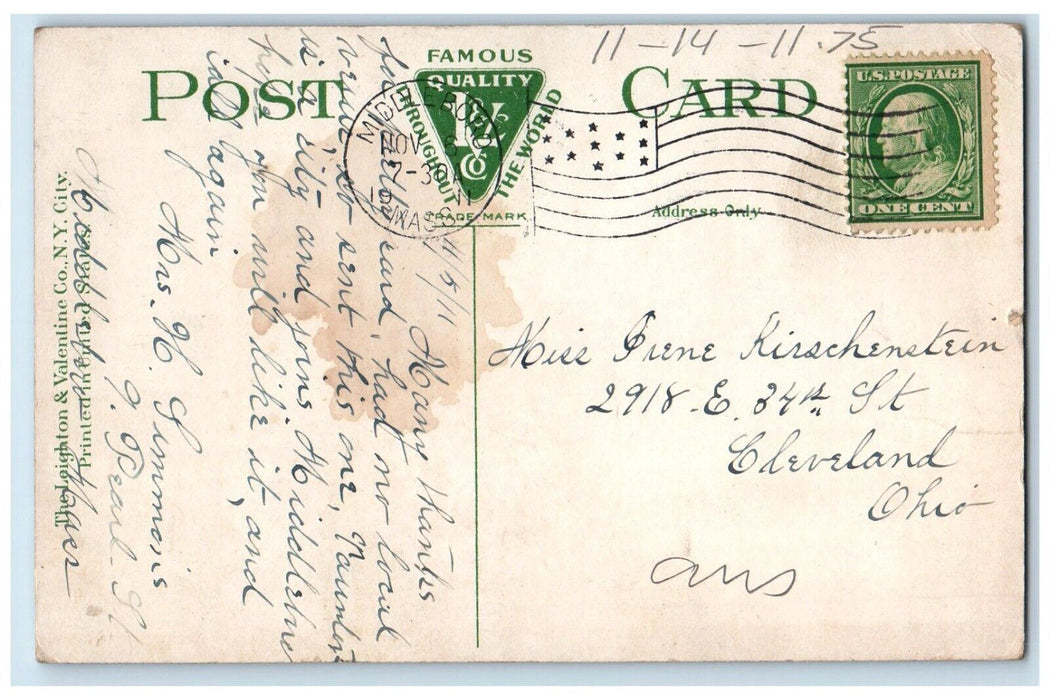 11-14-11.75
FAMOUS
QUALITY
V & Co
THROUGHOUT THE WORLD
TRADE MARK
POST CARD
U.S. POSTAGE
ONE CENT
MIDDLEBORO
NOV 6
7-30
MASS
Address Only
11/5/11
Many thanks
for card, had no local
views so sent this one, Taunton
is a city and joins Middleboro
hope you will like it, and
call again
Mrs. H. Simmons
9. Pearl St
Middleboro Mass
The Leighton & Valentine Co., N.Y. City.
Printed in United States.
Miss Irene Kirschenstein
2918 E. 34th St
Cleveland
Ohio
ans